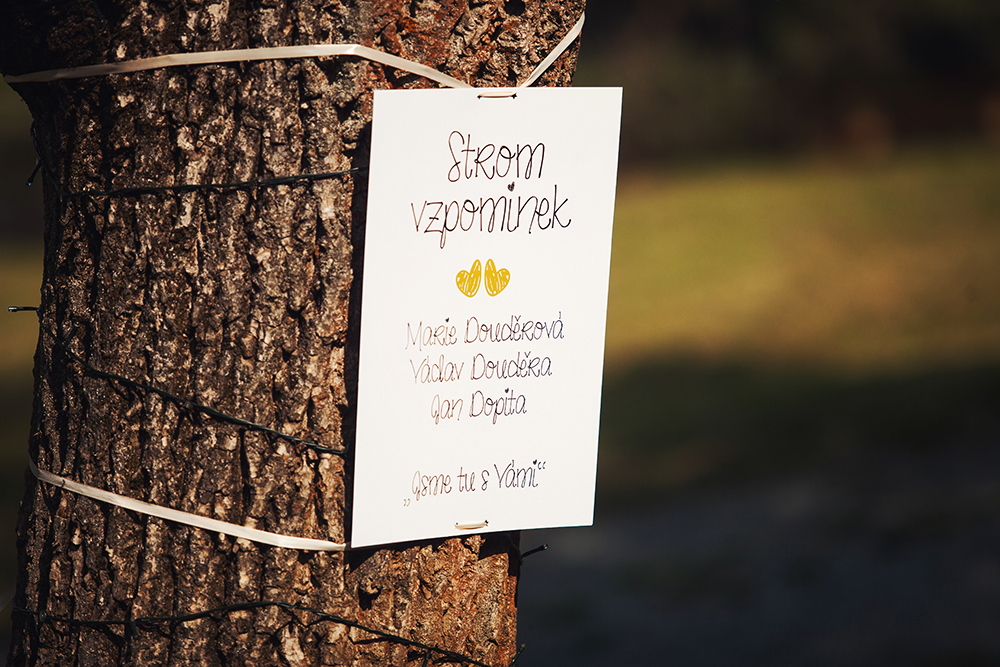 Strom
vzpomínek
Marie Douděrová
Václav Douděra
Jan Dopita
„Jsme tu s Vámi“